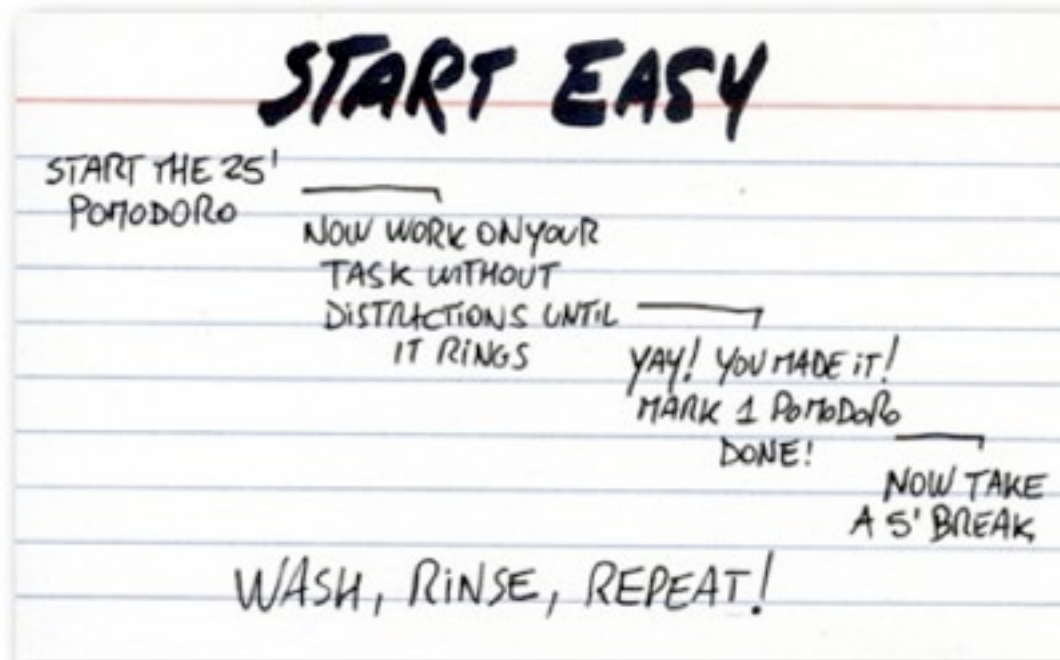 START EASY
START THE 25'
POMODORO
NOW WORK ON YOUR
TASK WITHOUT
DISTRACTIONS UNTIL
IT RINGS
YAY! YOU MADE IT!
MARK 1 POMODORO
DONE!
NOW TAKE
A 5' BREAK
WASH, RINSE, REPEAT!